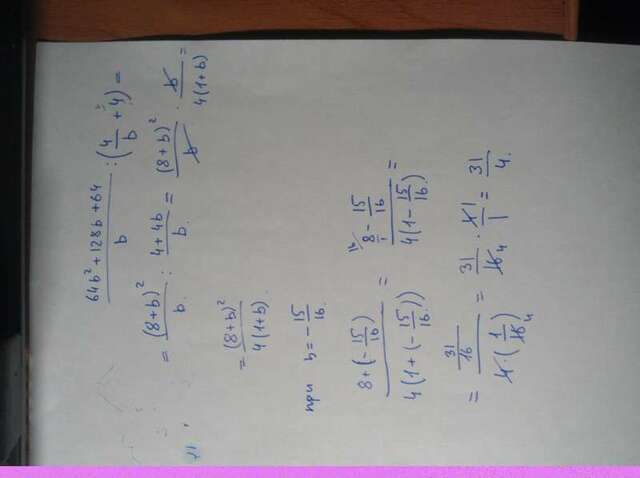 (64b² + 128b + 64)/b : (4/b + 4) =
= (8+b)²/b : (4+4b)/b = (8+b)²/b · b/(4(1+b)) =
= (8+b)²/(4(1+b)).
при b = -15/16.
(8+(-15/16))/(4(1+(-15/16))) = (8-15/16)/(4(1-15/16)) =
= (31/16)/(4·(1/16)) = 31/16 · 41/1 = 31/4.